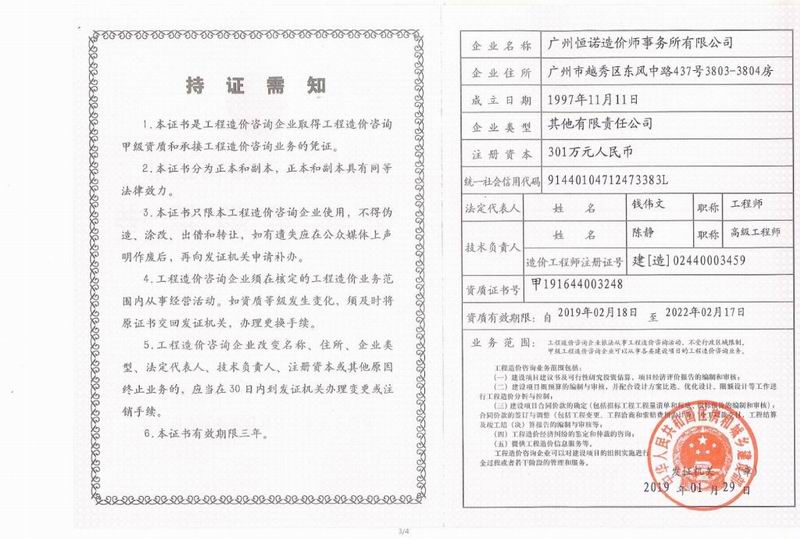 持证需知
1.本证书是工程造价咨询企业取得工程造价咨询
甲级资质和承接工程造价咨询业务的凭证。
2.本证书分为正本和副本，正本和副本具有同等
法律效力。
3.本证书只限本工程造价咨询企业使用，不得伪
造、涂改、出借和转让，如有遗失应在公众媒体上声
明作废后，再向发证机关申请补办。
4.工程造价咨询企业须在核定的工程造价业务范
围内从事经营活动。如资质等级发生变化，须及时将
原证书交回发证机关，办理更换手续。
5.工程造价咨询企业改变名称、住所、企业类
型、法定代表人、技术负责人、注册资本或其他原因
终止业务的，应当在30日内到发证机关办理变更或注
销手续。
6.本证书有效期限三年。
企业名称 广州恒诺造价师事务所有限公司
企业住所 广州市越秀区东风中路437号3803-3804房
成立日期 1997年11月11日
企业类型 其他有限责任公司
注册资本 301万元人民币
统一社会信用代码 91440104712473383L
法定代表人 姓名 钱伟文 职称 工程师
技术负责人 姓名 陈静 职称 高级工程师
造价工程师注册证号 建[造]02440003459
资质证书号 甲191644003248
资质有效期限：自 2019年02月18日 至 2022年02月17日
业务范围：
工程造价咨询企业依法从事工程造价咨询活动，不受行政区域限制。
甲级工程造价咨询企业可以从事各类建设项目的工程造价咨询业务。
工程造价咨询业务范围包括：
（一）建设项目建议书及可行性研究投资估算、项目经济评价报告的编制和审核；
（二）建设项目概预算的编制与审核，并配合设计方案比选、优化设计、限额设计等工作进
行工程造价分析与控制；
（三）建设项目合同价款的确定（包括招标工程工程量清单和标底、投标报价的编制和审核）；
合同价款的签订与调整（包括工程变更、工程洽商和索赔费用的计算）及工程款支付，工程结算
及竣工结（决）算报告的编制与审核等；
（四）工程造价经济纠纷的鉴定和仲裁的咨询；
（五）提供工程造价信息服务等。
工程造价咨询企业可以对建设项目的组织实施进行
全过程或者若干阶段的管理和服务。
中华人民共和国住房和城乡建设部
发证机关 章
2019 年 01 月 29 日
3/4